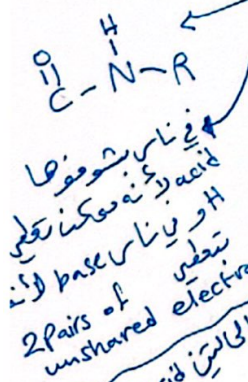 O H
C - N - R
في ناس بشوفوها
acid لأنه ممكن تعطي
H و في ناس base لأنه
تعطي
2 Pairs of
unshared electro
الحالتين